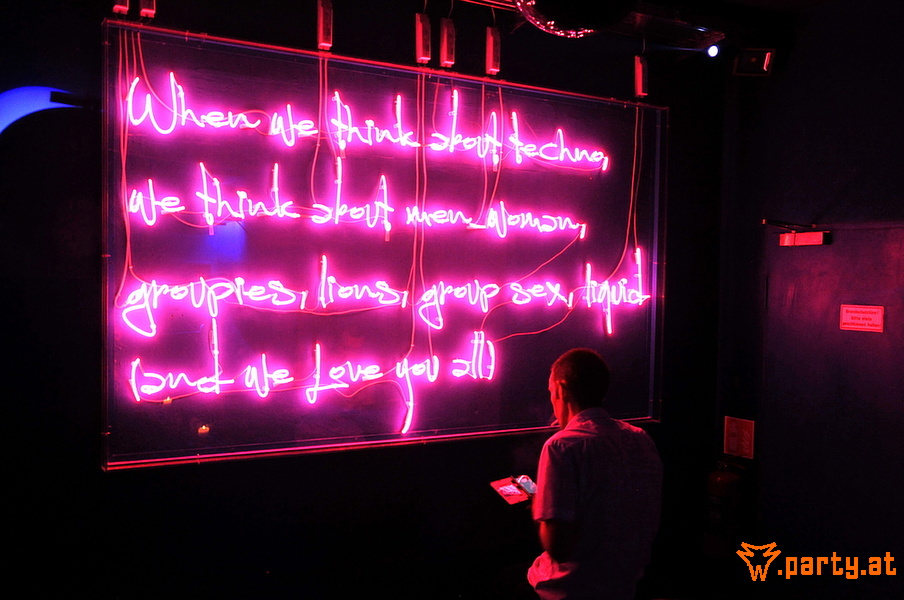 When we think about techno,
we think about men_woman,
groupies, lions, group sex, liquid
(and we love you all)
w.party.at